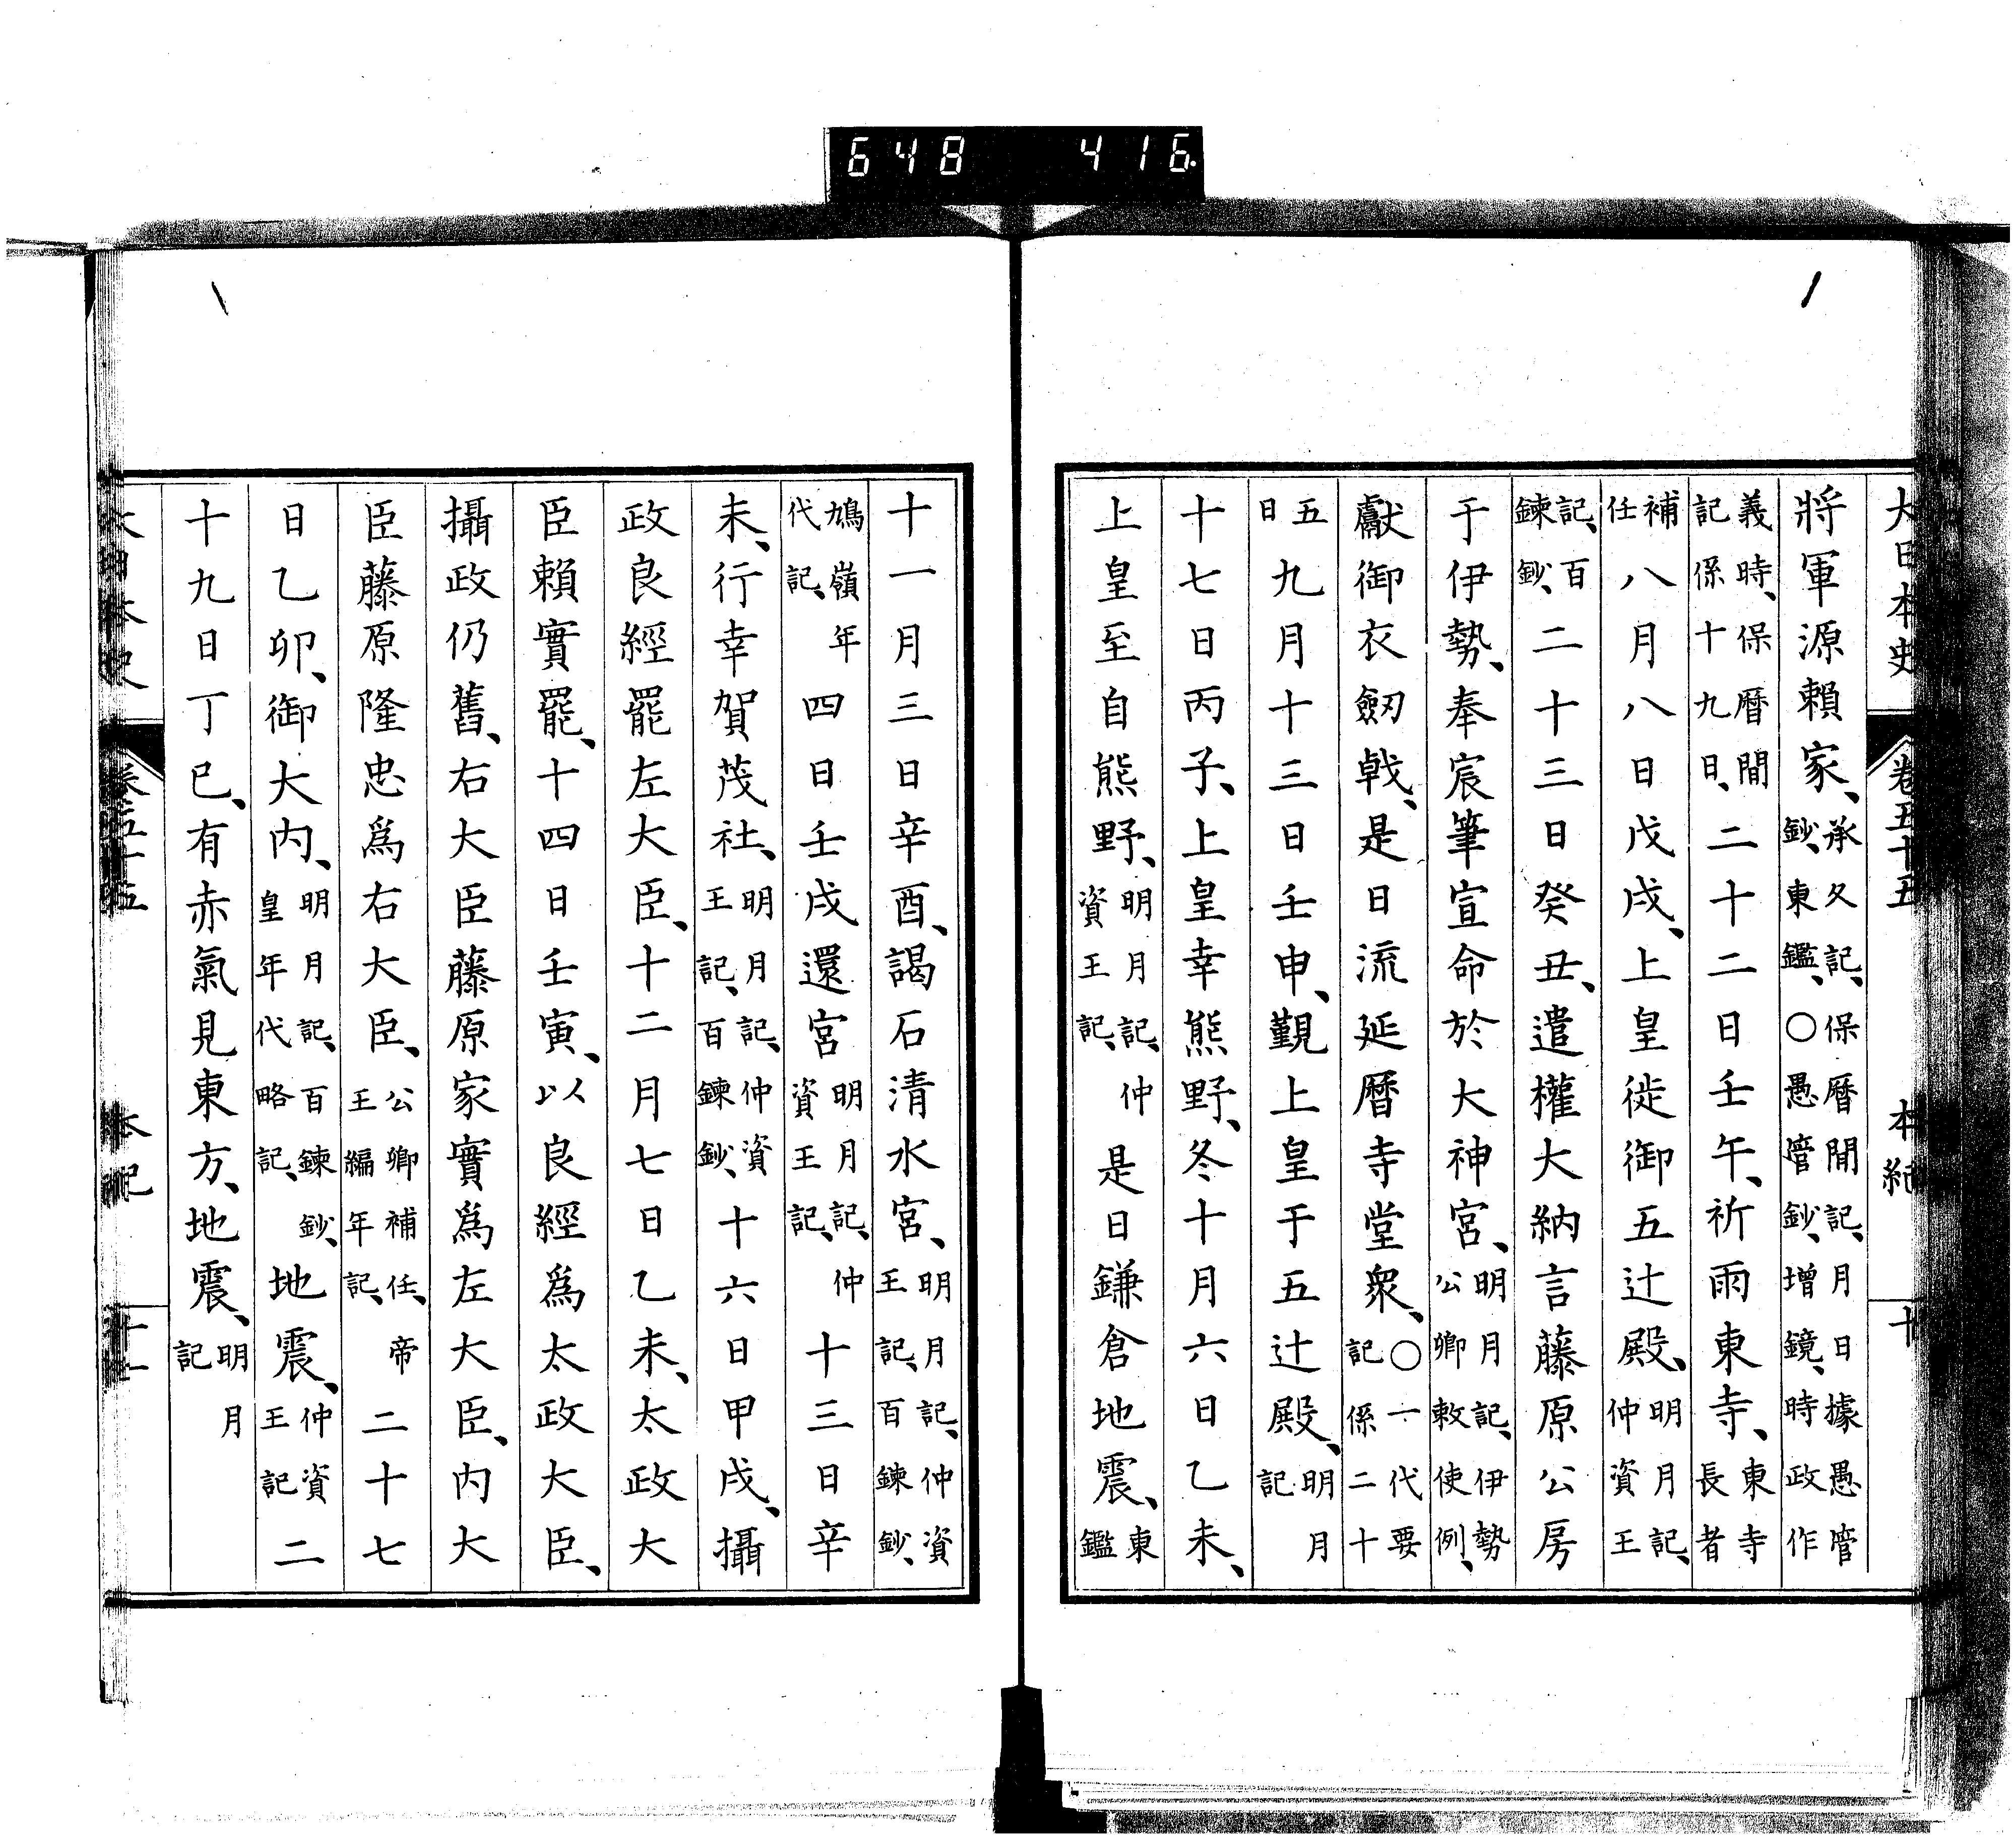 648 416.
大日本史 卷五十五 本紀 十
將軍源賴家、承久記、保曆閒記、月日據愚管鈔、東鑑、〇愚管鈔、增鏡、時政作
義時、保曆閒記係十九日、二十二日壬午、祈雨東寺、東寺長者
補任八月八日戊戌、上皇徙御五辻殿、明月記、仲資王
記、百鍊鈔、二十三日癸丑、遣權大納言藤原公房
于伊勢、奉宸筆宣命於大神宮、明月記、伊勢公卿敕使例、
獻御衣劔戟、是日流延曆寺堂衆、〇一代要記係二十
五日九月十三日壬申、覲上皇于五辻殿、明月記
十七日丙子、上皇幸熊野、冬十月六日乙未、
上皇至自熊野、明月記、仲資王記、是日鎌倉地震、東鑑
十一月三日辛酉、謁石清水宮、明月記、仲資王記、百鍊鈔、
鳩嶺年代記、四日壬戌還宮明月記、仲資王記、十三日辛
未、行幸賀茂社、明月記、仲資王記、百鍊鈔、十六日甲戌、攝
政良經罷左大臣、十二月七日乙未、太政大
臣賴實罷、十四日壬寅、以良經爲太政大臣、
攝政仍舊、右大臣藤原家實爲左大臣、内大
臣藤原隆忠爲右大臣、公卿補任、帝王編年記、二十七
日乙卯、御大内、明月記、百鍊鈔、皇年代略記、地震、仲資王記二
十九日丁巳、有赤氣見東方、地震、明月記
大日本史 卷五十五 本紀 十一